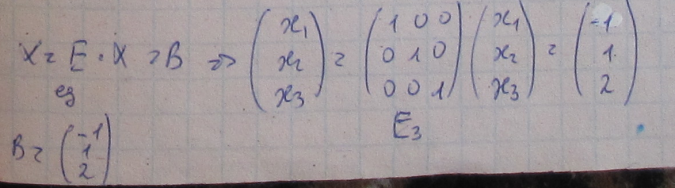 X = E · X = B => (x₁ x₂ x₃) = (1 0 0 0 1 0 0 0 1) (x₁ x₂ x₃) = (-1 1 2)
ед
E₃
B = (-1 1 2)